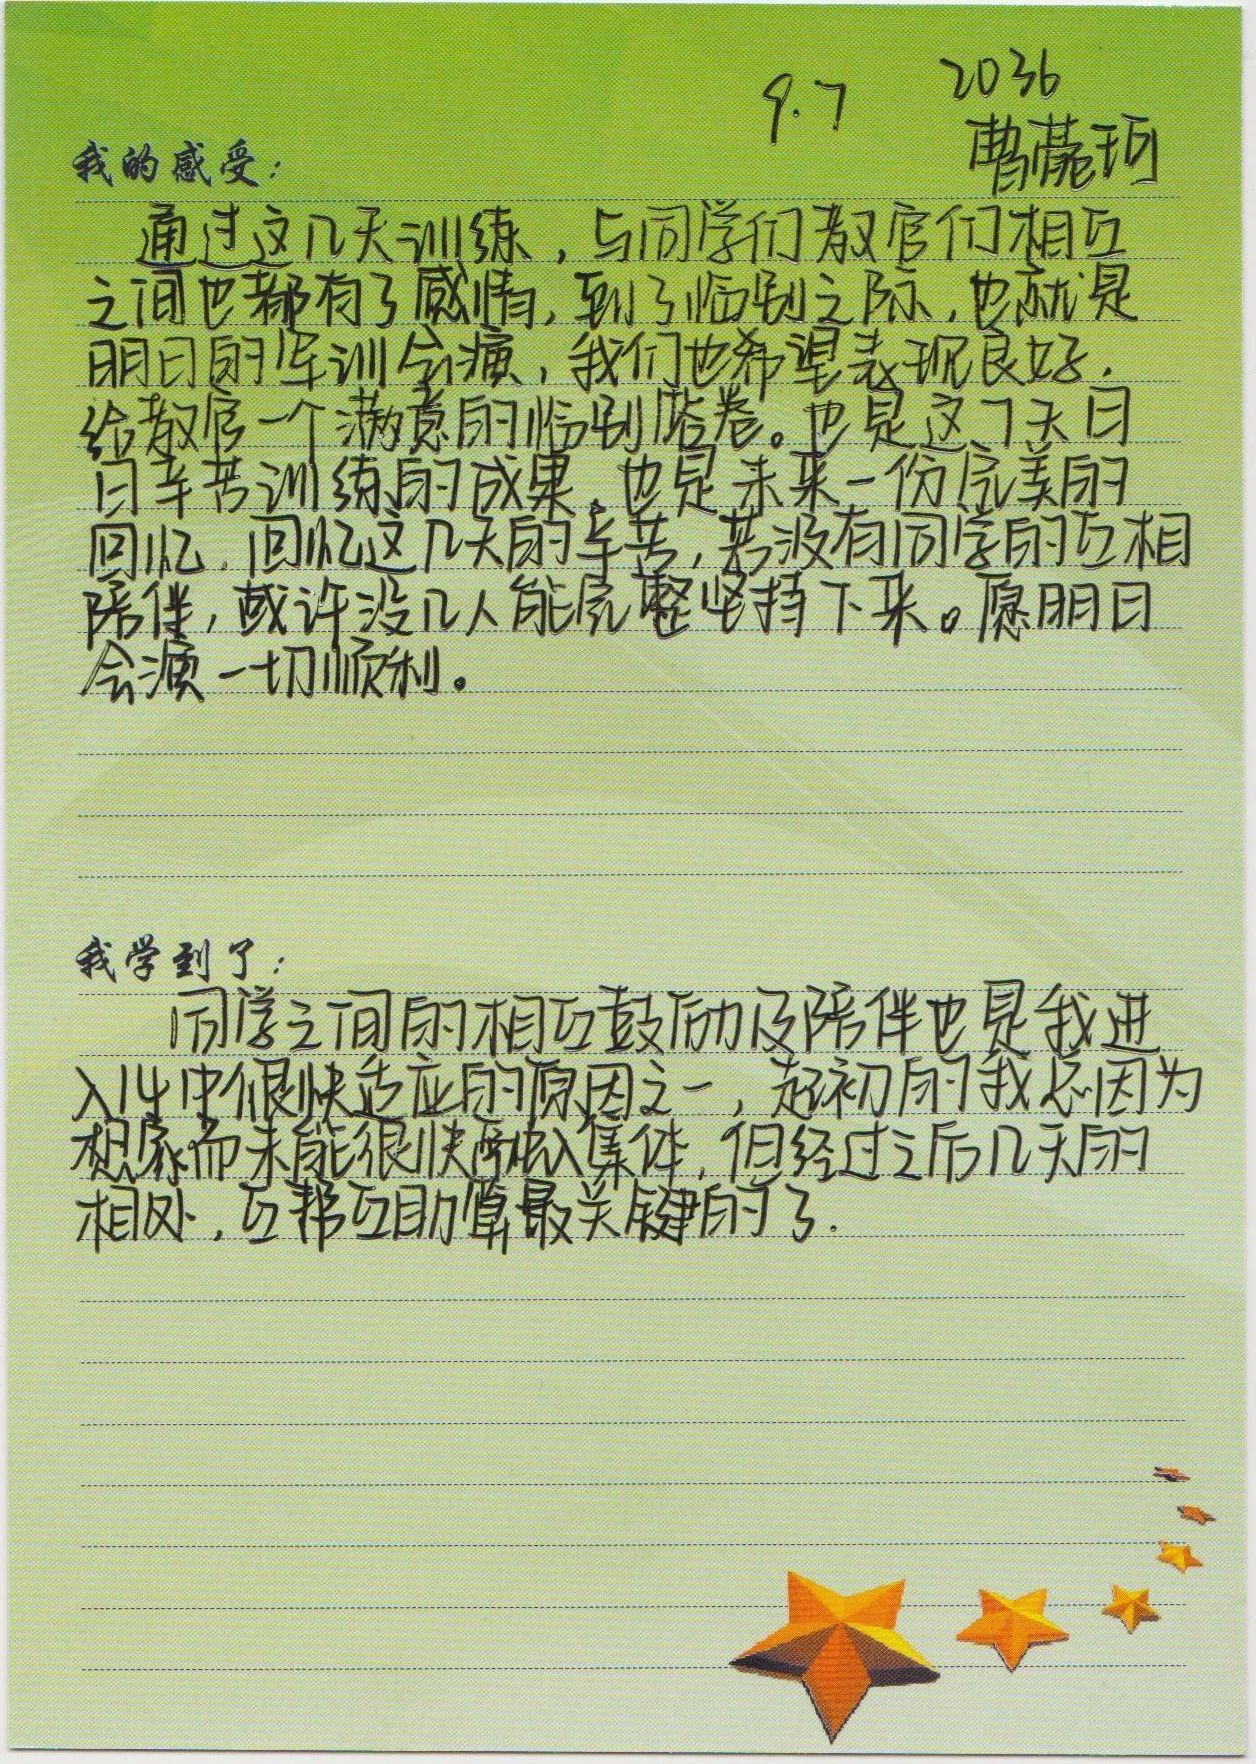 9.7 2036
曹薇珂
我的感受：
通过这几天训练，与同学们教官们相互
之间也都有了感情，到了临别之际，也就是
明日的军训会演，我们也希望表现良好.
给教官一个满意的临别答卷。也是这7天日
日辛苦训练的成果.也是未来一份完美的
回忆.回忆这几天的辛苦，若没有同学的互相
陪伴，或许没几人能完整坚持下来。愿明日
会演一切顺利。
我学到了：
同学之间的相互鼓励及陪伴也是我进
入14中很快适应的原因之一，起初的我总因为
想家而未能很快融入集体.但经过之后几天的
相处，互帮互助算最关键的了.